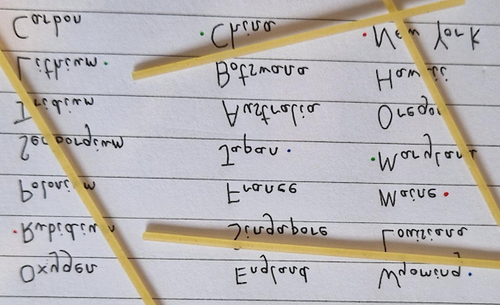 Oxygen England Wyoming
Rubidium Singapore Louisiana
Polonium France Maine
Seaborgium Japan Maryland
Iridium Australia Oregon
Lithium Botswana Hawaii
Carbon China New York